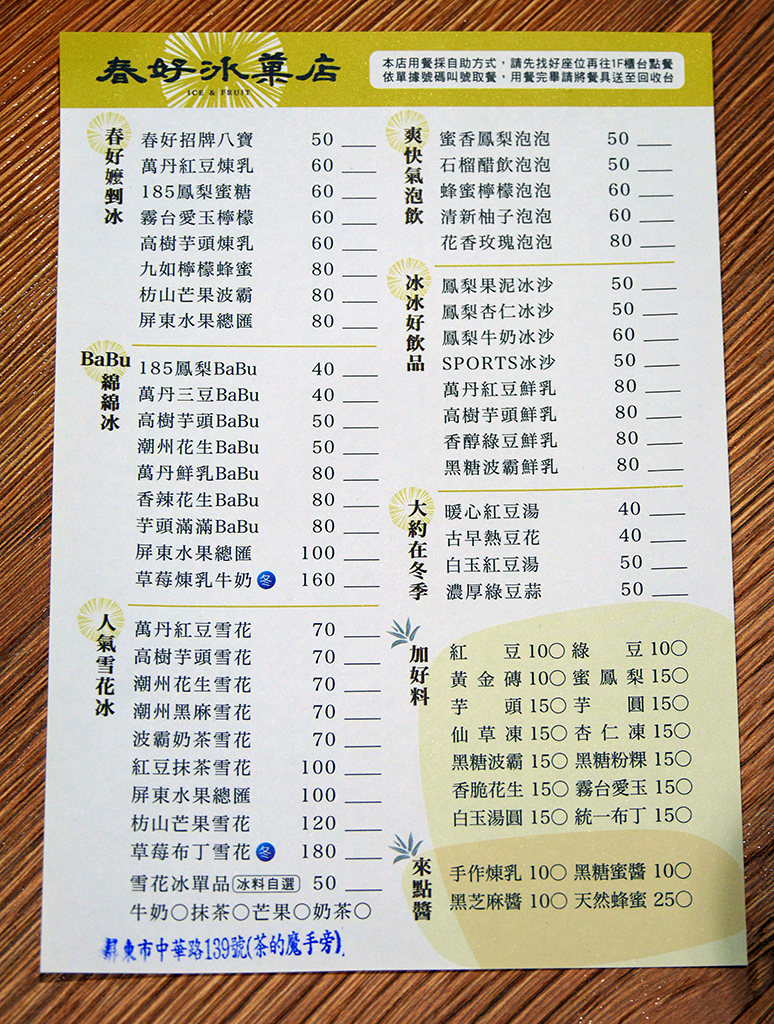 春好冰菓店
ICE & FRUIT
本店用餐採自助方式，請先找好座位再往1F櫃台點餐
依單據號碼叫號取餐，用餐完畢請將餐具送至回收台
春好嬤剉冰
春好招牌八寶 50
萬丹紅豆煉乳 60
185鳳梨蜜糖 60
霧台愛玉檸檬 60
高樹芋頭煉乳 60
九如檸檬蜂蜜 80
枋山芒果波霸 80
屏東水果總匯 80
BaBu綿綿冰
185鳳梨BaBu 40
萬丹三豆BaBu 40
高樹芋頭BaBu 50
潮州花生BaBu 50
萬丹鮮乳BaBu 80
香辣花生BaBu 80
芋頭滿滿BaBu 80
屏東水果總匯 100
草莓煉乳牛奶 冬 160
人氣雪花冰
萬丹紅豆雪花 70
高樹芋頭雪花 70
潮州花生雪花 70
潮州黑麻雪花 70
波霸奶茶雪花 70
紅豆抹茶雪花 100
屏東水果總匯 100
枋山芒果雪花 120
草莓布丁雪花 冬 180
雪花冰單品 冰料自選 50
牛奶○抹茶○芒果○奶茶○
屏東市中華路139號(茶的魔手旁)
爽快氣泡飲
蜜香鳳梨泡泡 50
石榴醋飲泡泡 50
蜂蜜檸檬泡泡 60
清新柚子泡泡 60
花香玫瑰泡泡 80
冰冰好飲品
鳳梨果泥冰沙 50
鳳梨杏仁冰沙 50
鳳梨牛奶冰沙 60
SPORTS冰沙 50
萬丹紅豆鮮乳 80
高樹芋頭鮮乳 80
香醇綠豆鮮乳 80
黑糖波霸鮮乳 80
大約在冬季
暖心紅豆湯 40
古早熱豆花 40
白玉紅豆湯 50
濃厚綠豆蒜 50
加好料
紅豆 10○ 綠豆 10○
黃金磚 10○ 蜜鳳梨 15○
芋頭 15○ 芋圓 15○
仙草凍 15○ 杏仁凍 15○
黑糖波霸 15○ 黑糖粉粿 15○
香脆花生 15○ 霧台愛玉 15○
白玉湯圓 15○ 統一布丁 15○
來點醬
手作煉乳 10○ 黑糖蜜醬 10○
黑芝麻醬 10○ 天然蜂蜜 25○